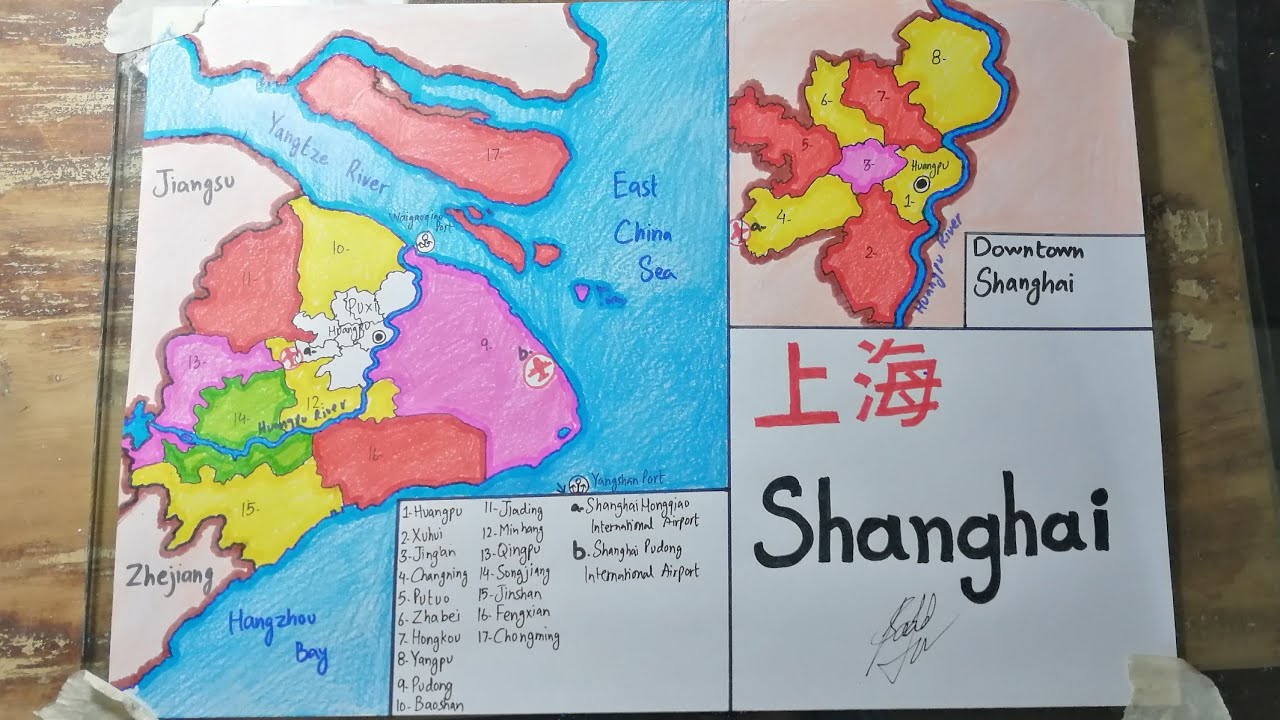 Yangtze River
17-
Jiangsu
East
China
Sea
Port
10-
11-
Puxi
Huangpu
a-
13-
9-
b-
12-
14-
Huangpu River
16-
15-
Yangshan Port
Zhejiang
Hangzhou
Bay
1-Huangpu
2-Xuhui
3-Jing'an
4-Changning
5-Putuo
6-Zhabei
7-Hongkou
8-Yangpu
9-Pudong
10-Baoshan
11-Jiading
12-Minhang
13-Qingpu
14-Songjiang
15-Jinshan
16-Fengxian
17-Chongming
a-Shanghai Hongqiao
International Airport
b-Shanghai Pudong
International Airport
8-
6-
7-
5-
3-
Huangpu
1-
4-
a-
2-
Huangpu River
Downtown
Shanghai
上海
Shanghai